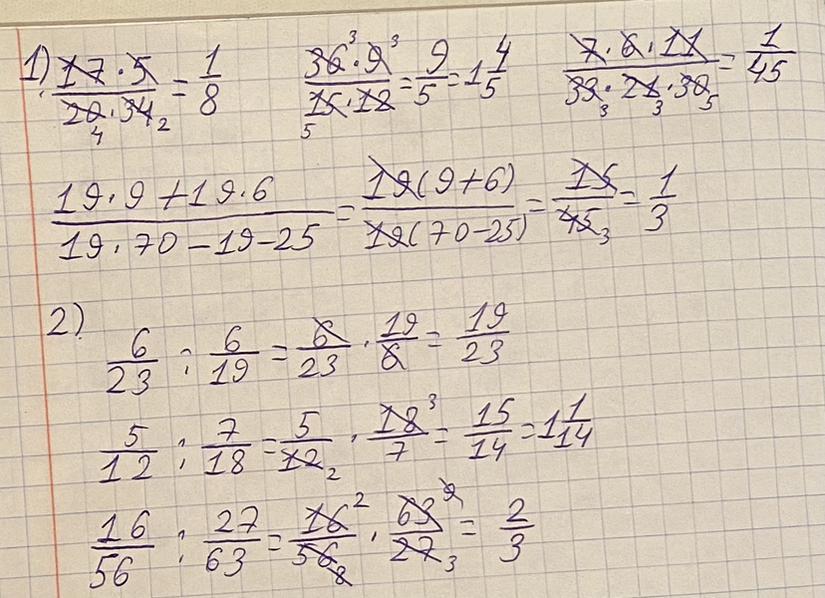 1) 17·5/20·34 4 2 = 1/8 36³·9³/15·12 5 = 9/5 = 1 4/5 7·6·11/33·21·30 3 3 5 = 1/45
19·9+19·6/19·70-19-25 = 19(9+6)/19(70-25) = 15/45 3 = 1/3
2)
6/23 : 6/19 = 6/23 · 19/6 = 19/23
5/12 : 7/18 = 5/12 2 · 18³/7 = 15/14 = 1 1/14
16/56 : 27/63 = 16²/56 8 · 63⁹/27 3 = 2/3